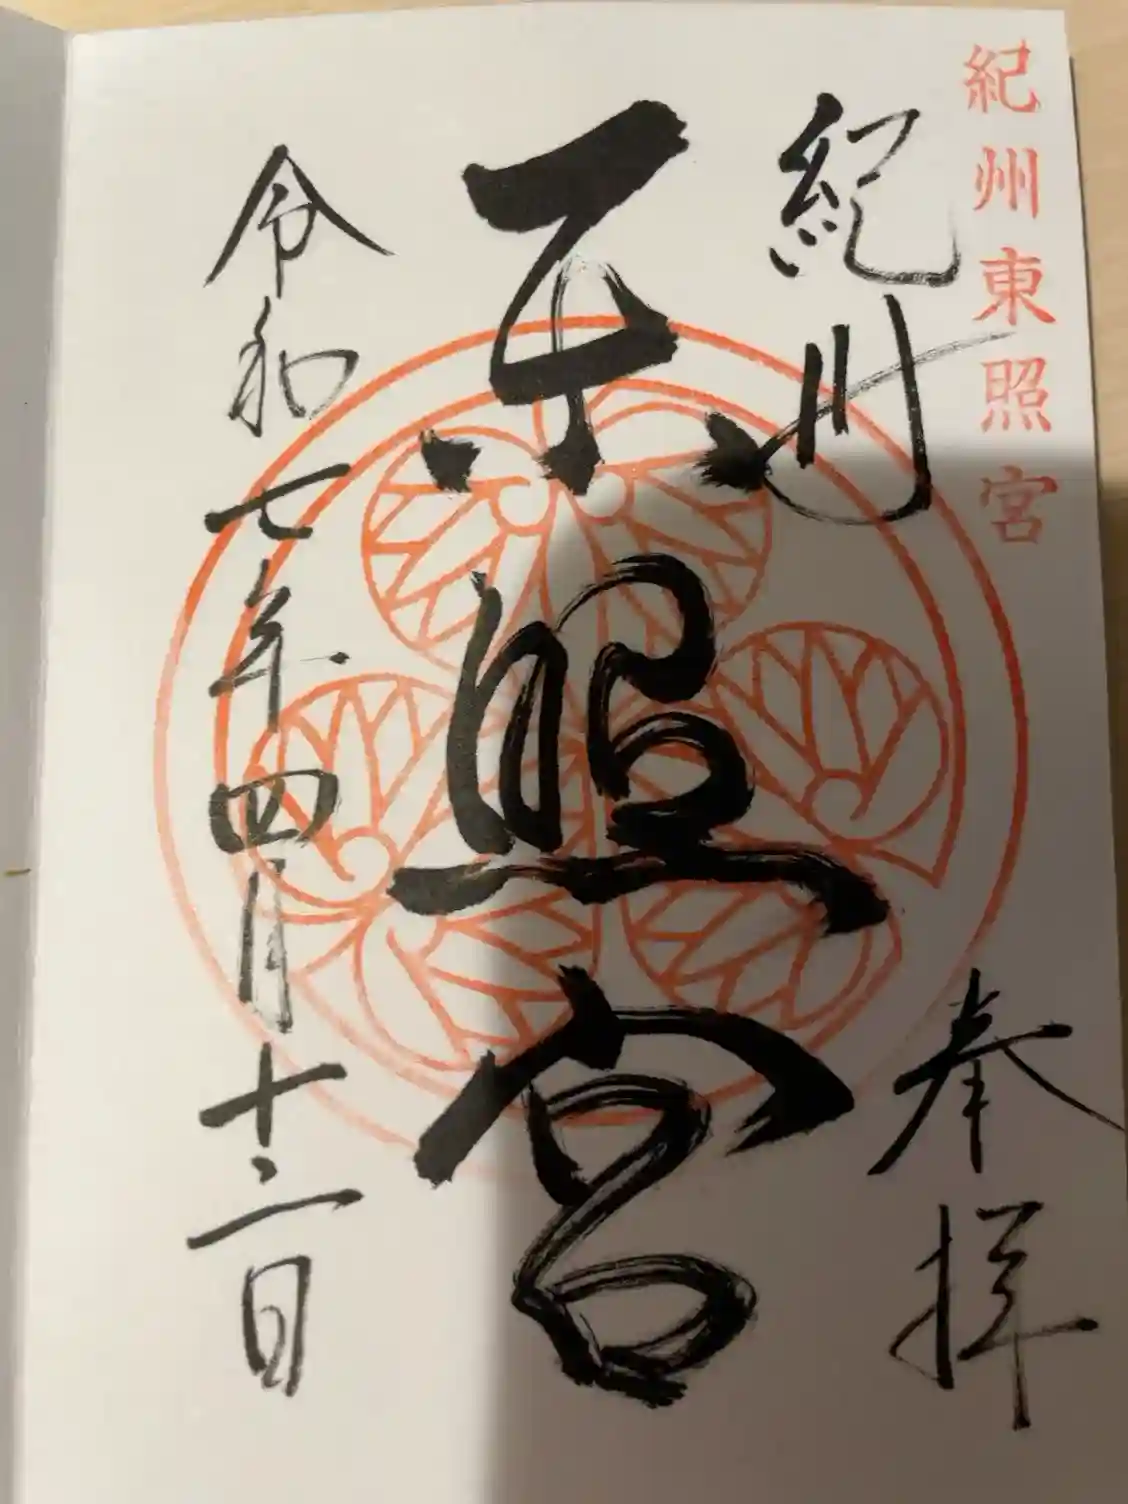 紀州東照宮
紀州
奉拝
東照宮
令和七年四月十二日